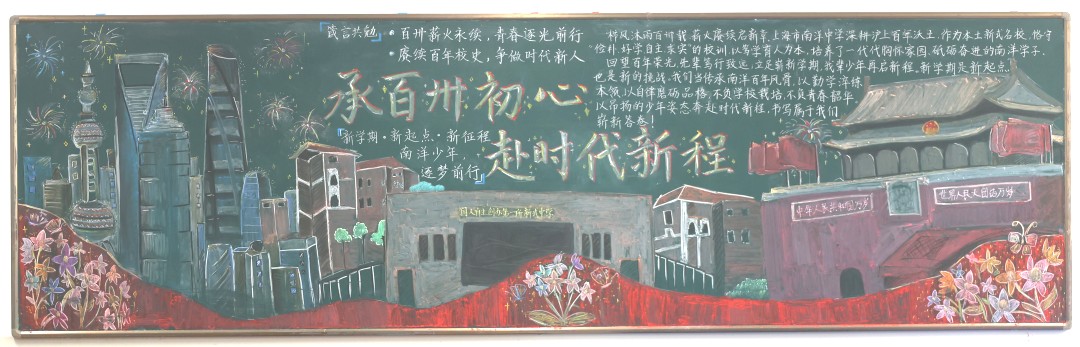 箴言共勉
• 百卅薪火永续，青春逐光前行
• 赓续百年校史，争做时代新人
承百卅初心
赴时代新程
新学期·新起点·新征程
南洋少年，
逐梦前行
栉风沐雨百卅载，薪火赓续启新章。上海市南洋中学深耕沪上百年沃土，作为本土新式名校，恪守
“俭朴好学自主求实”的校训，以笃学育人为本，培养了一代代胸怀家国、砥砺奋进的南洋学子。
回望百年荣光，先辈笃行致远，立足崭新学期，我辈少年再启新程。新学期是新起点，
也是新的挑战，我们当传承南洋百年风骨，以勤学淬炼
本领，以自律磨砺品格，不负学校栽培，不负青春韶华，
以昂扬的少年姿态奔赴时代新程，书写属于我们
崭新答卷！
国人自主创办第一所新式中学
中华人民共和国万岁
世界人民大团结万岁